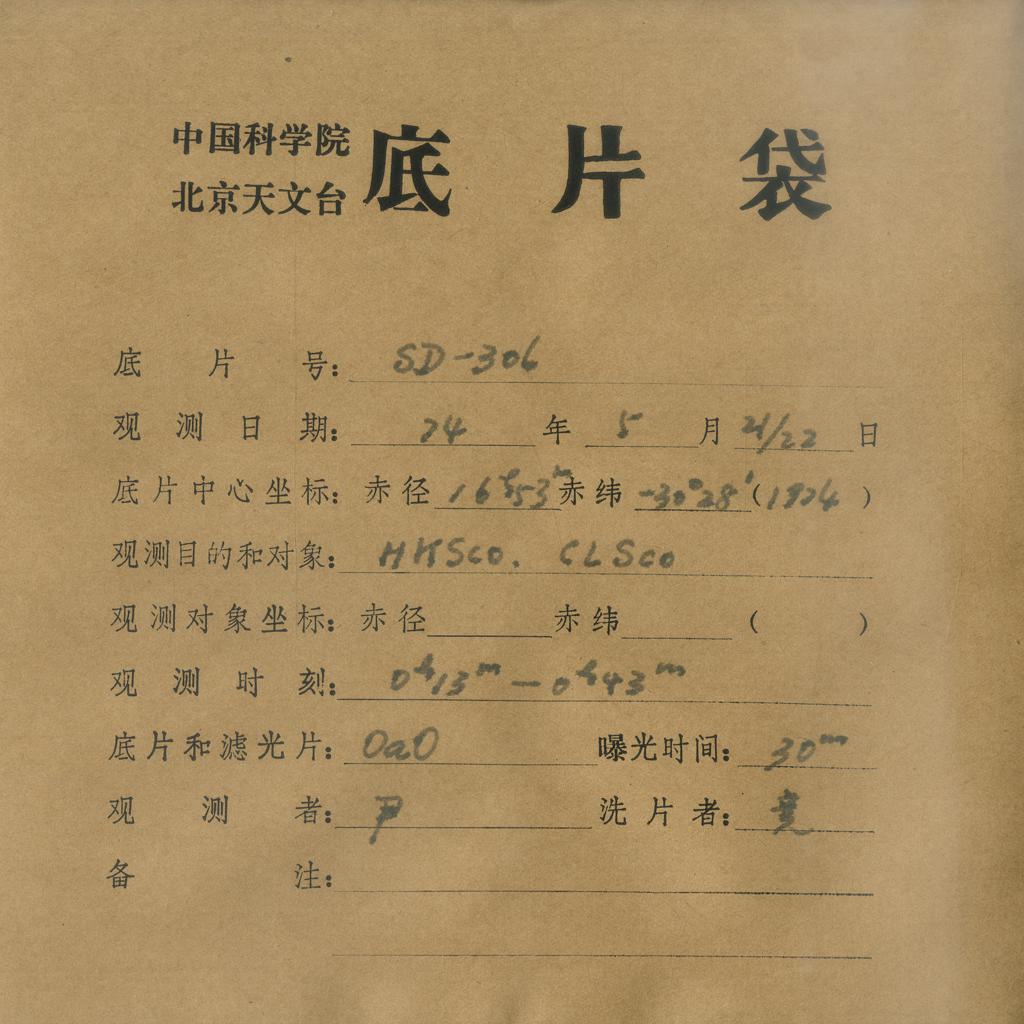 中国科学院
北京天文台
底片袋
底片号: SD-306
观测日期: 74 年 5 月 21/22 日
底片中心坐标: 赤径 16ʰ53ᵐ 赤纬 -30°28′ (1974)
观测目的和对象: HKSco. CLSco
观测对象坐标: 赤径 赤纬 ( )
观测时刻: 0ʰ13ᵐ — 0ʰ43ᵐ
底片和滤光片: OaO 曝光时间: 30ᵐ
观测者: 尹 洗片者:
备注: